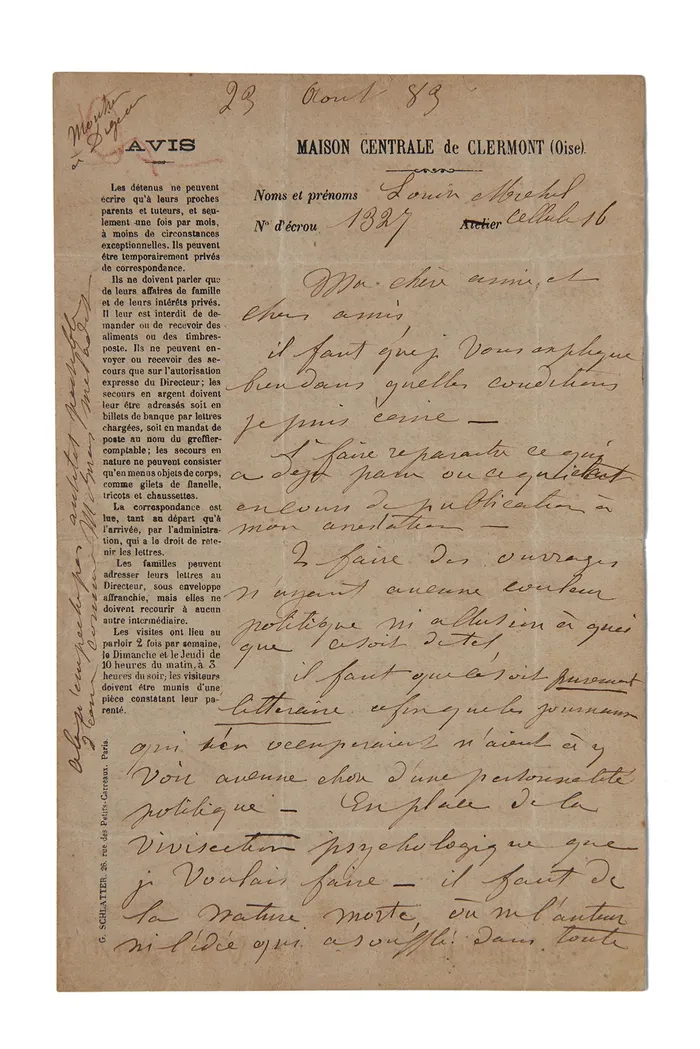 23 Aout 83
Montrer
à Digeon
AVIS
Les détenus ne peuvent
écrire qu'à leurs proches
parents et tuteurs, et seu-
lement une fois par mois,
à moins de circonstances
exceptionnelles. Ils peuvent
être temporairement privés
de correspondance.
Ils ne doivent parler que
de leurs affaires de famille
et de leurs intérêts privés.
Il leur est interdit de de-
mander ou de recevoir des
aliments ou des timbres-
poste. Ils ne peuvent en-
voyer ou recevoir des se-
cours que sur l'autorisation
expresse du Directeur; les
secours en argent doivent
leur être adressés soit en
billets de banque par lettres
chargées, soit en mandat de
poste au nom du greffier-
comptable; les secours en
nature ne peuvent consister
qu'en menus objets de corps,
comme gilets de flanelle,
tricots et chaussettes.
La correspondance est
lue, tant au départ qu'à
l'arrivée, par l'administra-
tion, qui a le droit de rete-
nir les lettres.
Les familles peuvent
adresser leurs lettres au
Directeur, sous enveloppe
affranchie, mais elles ne
doivent recourir à aucun
autre intermédiaire.
Les visites ont lieu au
parloir 2 fois par semaine,
le Dimanche et le Jeudi de
10 heures du matin, à 3
heures du soir; les visiteurs
doivent être munis d'une
pièce constatant leur pa-
renté.
G. SCHLATTER, 26, rue des Petits-Carreaux, Paris.
MAISON CENTRALE de CLERMONT (Oise).
Noms et prénoms Louise Michel
N° d'écrou 1327 Atelier cellule 16
Ma chère amie, et
chers amis
il faut que je vous explique
bien dans quelles conditions
je puis écrire —
1° faire reparaitre ce qui
a deja paru ou ce qui était
en cours de publication à
mon arrestation —
2 faire des ouvrages
n'ayant aucune couleur
politique ni allusion à quoi
que ce soit de tel
il faut que ce soit purement
litteraire afin que les journaux
qui s'en occuperaient n'aient à y
voir aucune chose d'une personnalité
politique — En place de la
vivisection psychologique que
je voulais faire — il faut de
la nature morte, où ni l'auteur
ni l'idée qui a soufflé dans toute